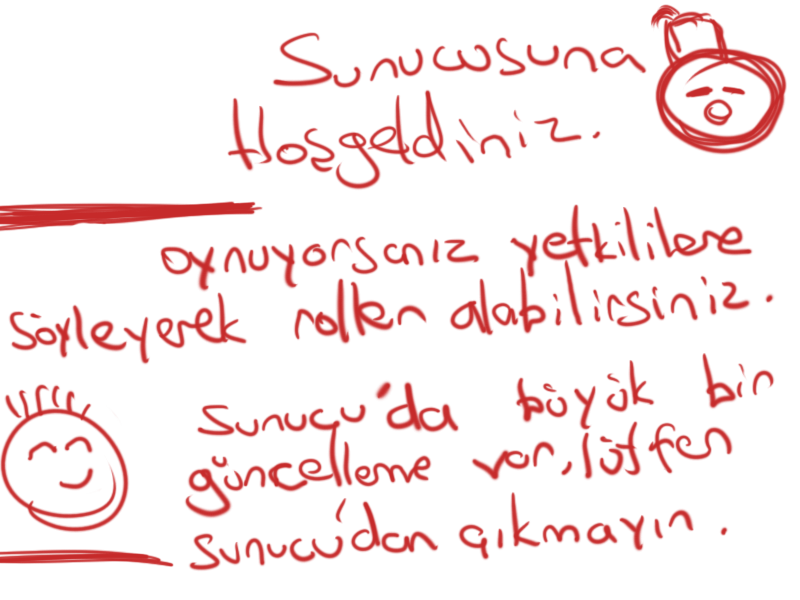 Sunucusuna
Hoşgeldiniz.
oynuyorsanız yetkililere
söyleyerek rolleri alabilirsiniz.
Sunucu'da büyük bir
güncelleme var, lütfen
sunucu'dan çıkmayın.